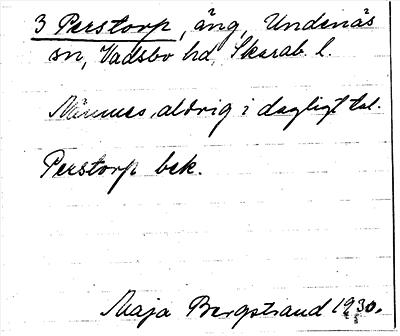 3 Perstorp, äng, Undenäs
sn, Vadsbo hd, Skarab. l.
Nämnes aldrig i dagligt tal.
Perstorp bek.
Maja Bergstrand 1930.